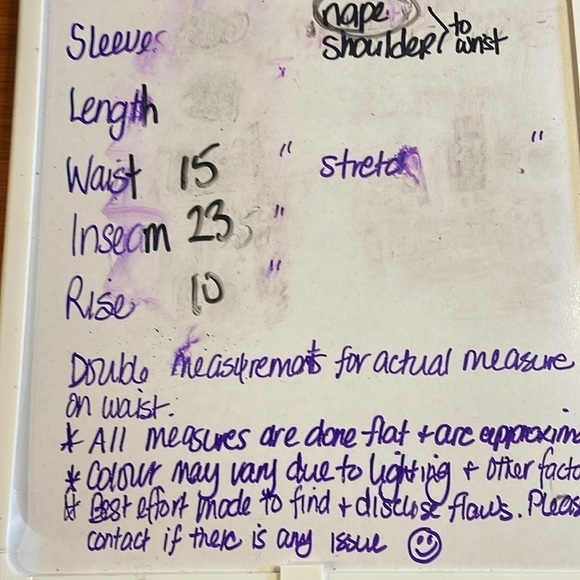 Sleeves nape to
shoulder wrist
Length
Waist 15 " stretch "
Inseam 23 "
Rise 10 "
Double measurements for actual measure
on waist.
* All measures are done flat + are approxim
* Colour may vary due to lighting + other facto
* Best effort made to find + disclose flaws. Pleas
contact if there is any issue ☺